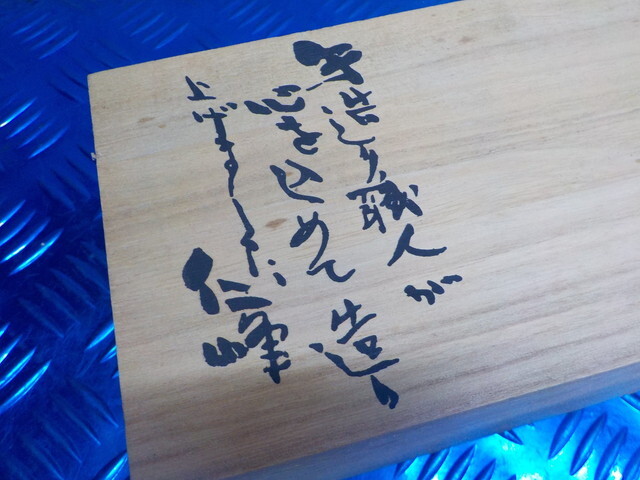 手造り職人が
心を込めて造り
上げました
仁峰